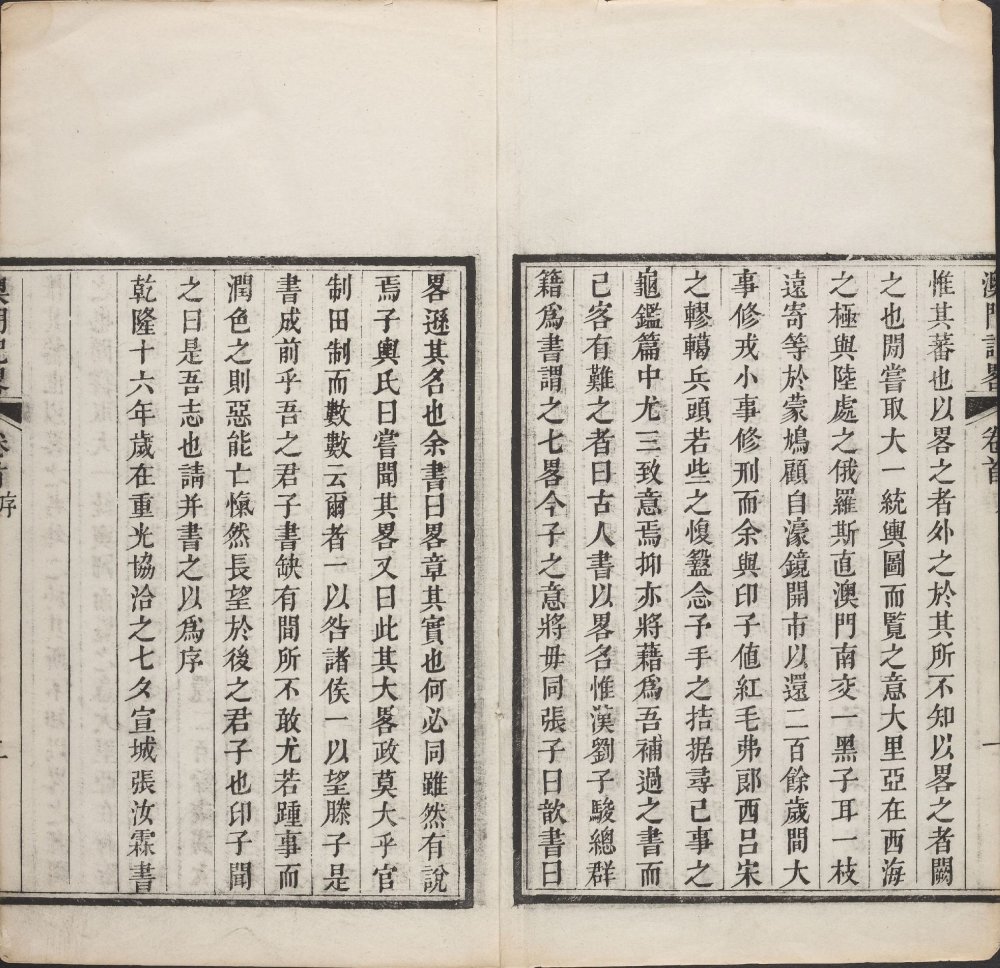 澳門記畧 卷首
惟其蕃也以畧之者外之於其所不知以畧之者闕
之也閒嘗取大一統輿圖而覽之意大里亞在西海
之極與陸處之俄羅斯直澳門南交一黑子耳一枝
遠寄等於蒙鳩顧自濠鏡開市以還二百餘歲間大
事修戎小事修刑而余與印子値紅毛弗郎西呂宋
之轇轕兵頭若些之愎盭念予手之拮据尋已事之
龜鑑篇中尤三致意焉抑亦將藉爲吾補過之書而
已客有難之者曰古人書以畧名惟漢劉子駿總群
籍爲書謂之七畧今子之意將毋同張子曰歆書曰
畧遜其名也余書曰畧章其實也何必同雖然有說
焉子輿氏曰嘗聞其畧又曰此其大畧政莫大乎官
制田制而數數云爾者一以咎諸侯一以望滕子是
書成前乎吾之君子書缺有間所不敢尤若踵事而
潤色之則惡能亡愾然長望於後之君子也印子聞
之曰是吾志也請并書之以爲序
乾隆十六年歲在重光協洽之七夕宣城張汝霖書
澳門記畧 卷首 序